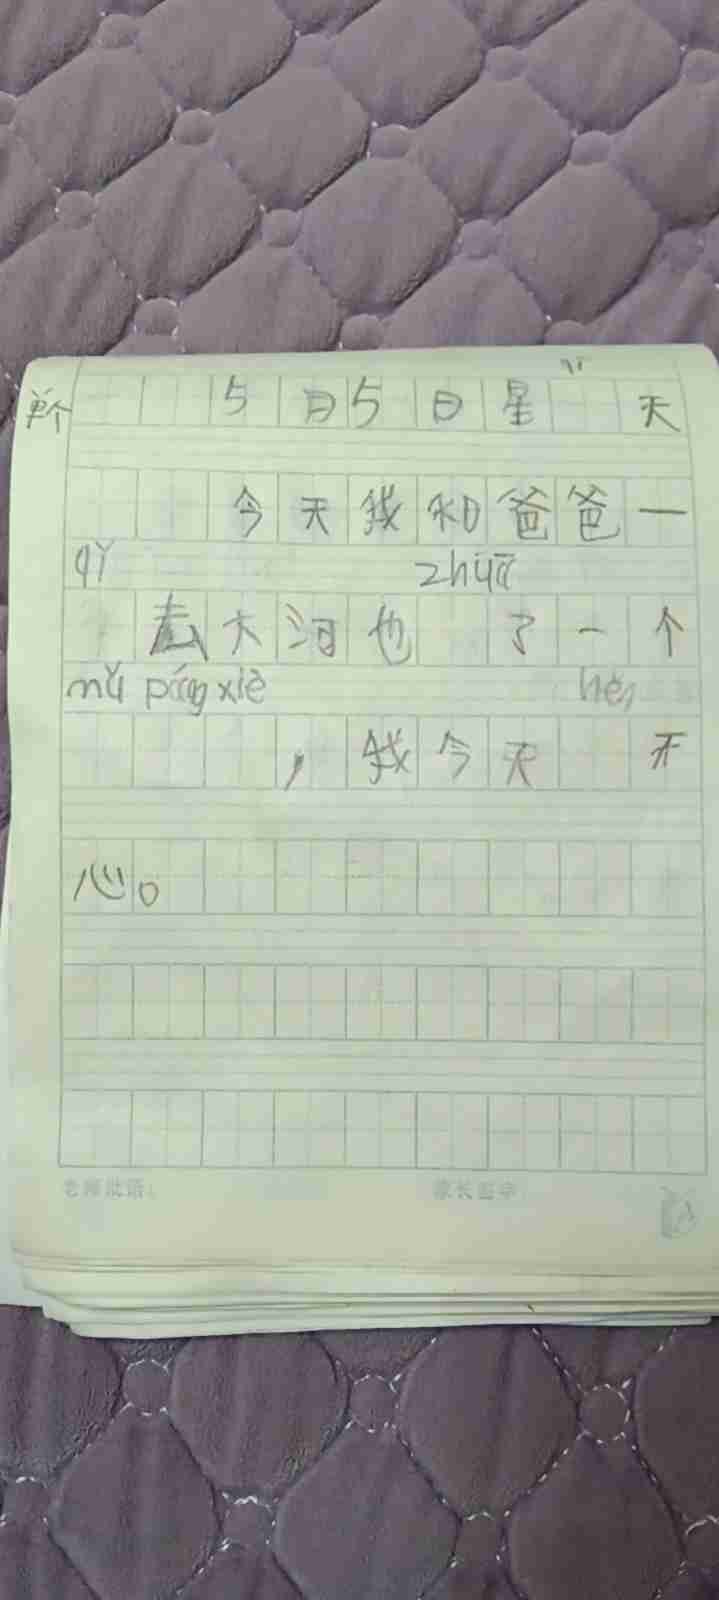 5月5日星 天
今天我和爸爸一
qǐ zhuā
去大河也 了一个
mǔ páng xiè hěn
，我今天 开
心。
老师批语：　家长签字